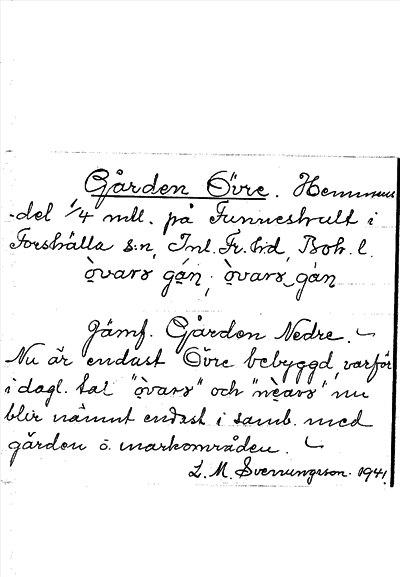 Gården Övre. Hemmans
-del 1/4 mtl. på Funneshult i
Forshälla s:n, Inl. Fr. h:d, Boh. l.
ǫ̀vars gán; ǫ̀vars gàn
Jämf. Gården Nedre.
Nu är endast Övre bebyggd, varför
i dagl. tal "ǫ̀vars" och "nèars" nu
blir nämnt endast i samb. med
gården o. markområden.
L. M. Svenungsson. 1941.